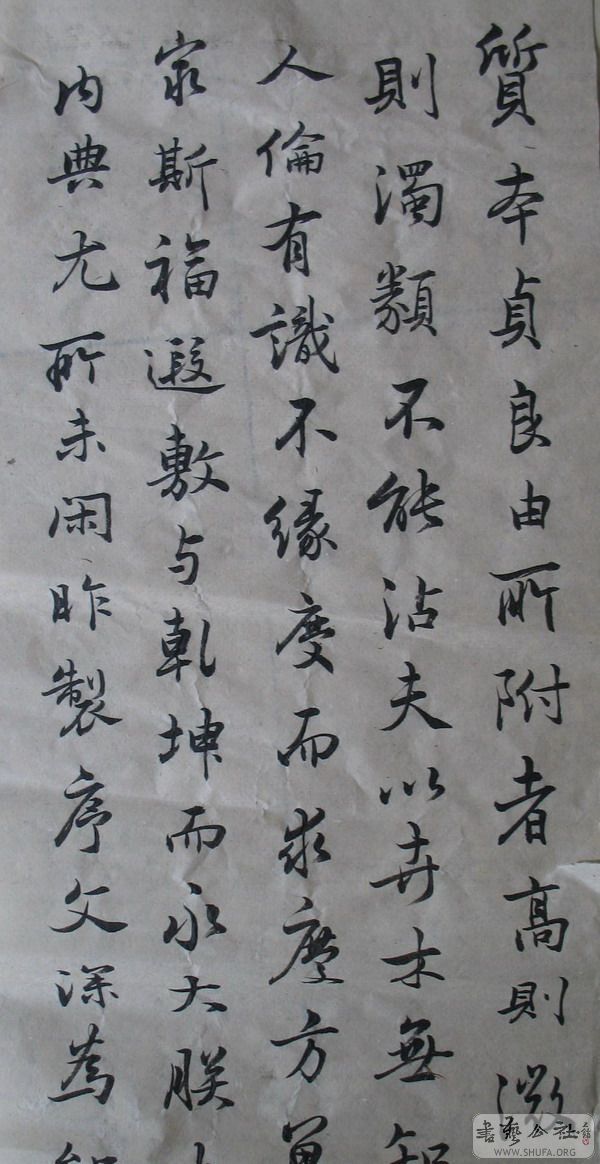 質本貞良由所附者高則微
則濁類不能沾夫以卉木無知
人倫有識不緣慶而求慶方
窮斯福遐敷与乾坤而永大朕
内典尤所未閑昨製序文深為
書藝公社
WWW.SHUFA.ORG